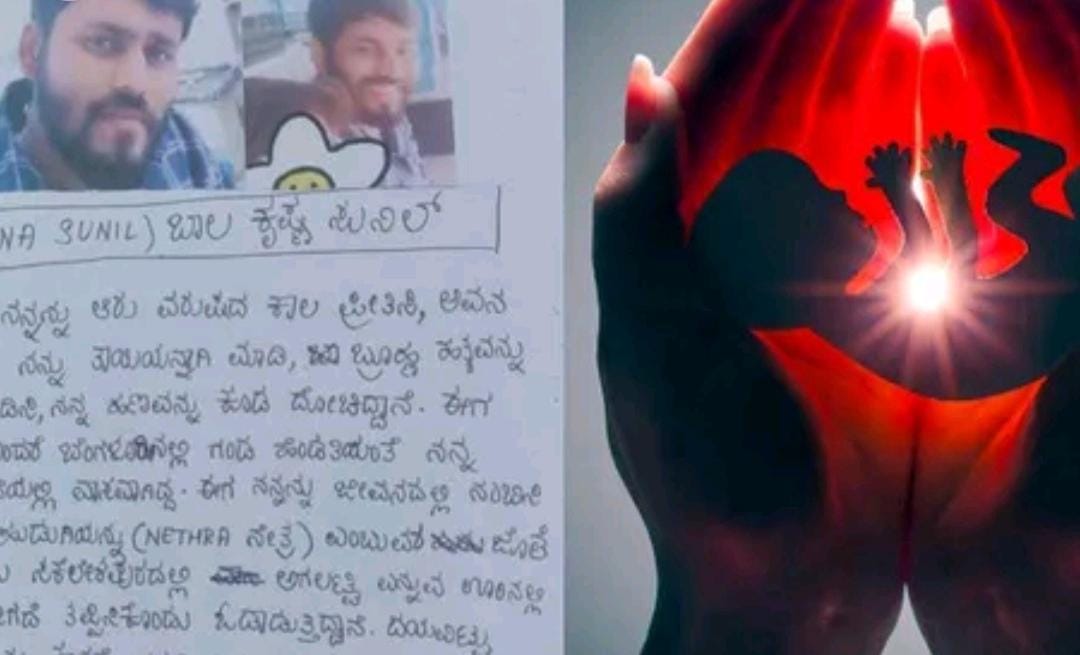 NA SUNIL) ಬಾಲ ಕೃಷ್ಣ ಸುನಿಲ್
ನನ್ನನ್ನು ಆರು ವರುಷದ ಕಾಲ ಪ್ರೀತಿಸಿ, ಅವನ
ನನ್ನು ತಾಯಿಯನ್ನಾಗಿ ಮಾಡಿ, ಬ್ರೂಣ ಹತ್ಯವನ್ನು
ಡಿಸಿ, ನನ್ನ ಹಣವನ್ನು ಕೂಡ ದೋಚಿದ್ದಾನೆ. ಈಗ
ಬೆಂಗಳೂರಿನಲ್ಲಿ ಗಂಡ ಹೆಂಡತಿಯಂತೆ ನನ್ನ
ಯಲ್ಲಿ ವಾಸವಾಗಿದ್ದ. ಈಗ ನನ್ನನ್ನು ಜೀವನದಲ್ಲಿ ನಂಬಿಸಿ
ಹುಡುಗಿಯನ್ನು (NETHRA ನೇತ್ರ) ಎಂಬುವರ ಜೊತೆ
ಸಕಲೇಶಪುರದಲ್ಲಿ ಅಗಲಟ್ಟಿ ಎನ್ನುವ ಊರಿನಲ್ಲಿ
ತಪ್ಪಿಸಿಕೊಂಡು ಓಡಾಡುತ್ತಿದ್ದಾನೆ. ದಯವಿಟ್ಟು